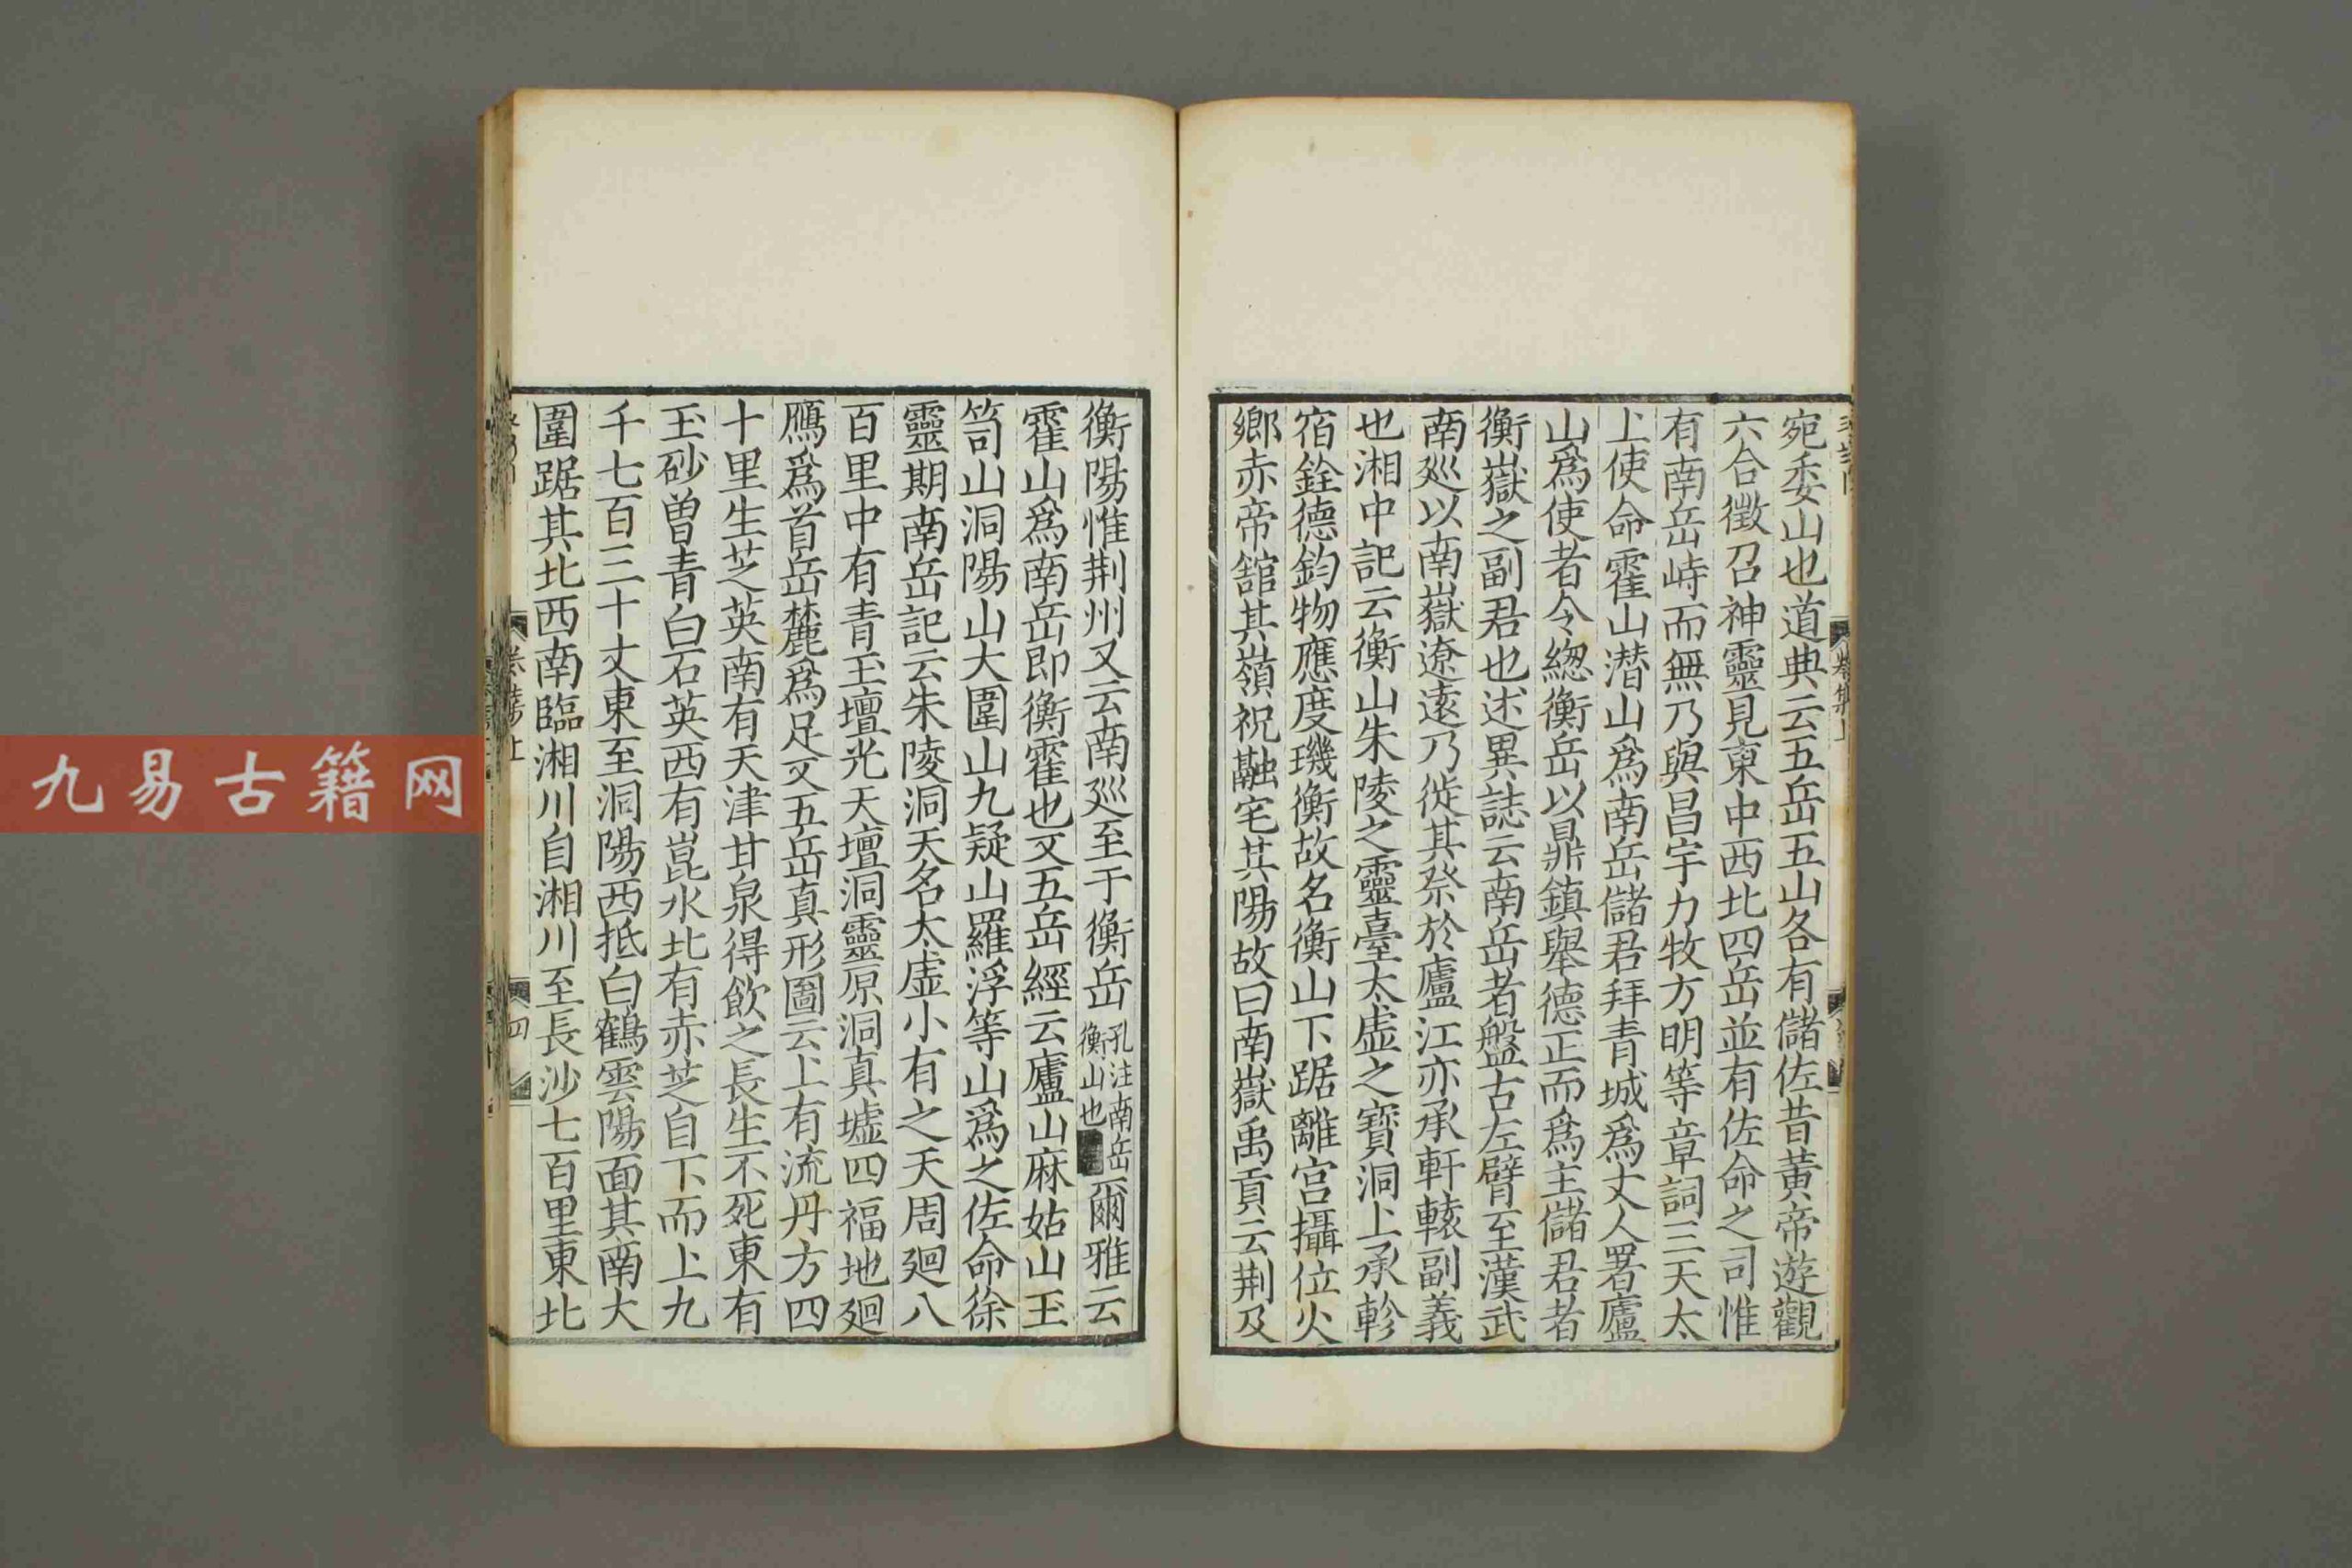 宛委山也道典云五岳五山各有儲佐昔黃帝遊觀
六合徵召神靈見東中西北四岳並有佐命之司惟
有南岳峙而無乃與昌宇力牧方明等章詞三天太
上使命霍山潜山爲南岳儲君拜青城爲丈人署廬
山爲使者令緫衡岳以鼎鎮舉德正而爲主儲君者
衡嶽之副君也述異誌云南岳者盤古左臂至漢武
南廵以南嶽遼遠乃徙其祭於廬江亦承軒轅副義
也湘中記云衡山朱陵之靈臺太虛之寶洞上承軫
宿銓德鈞物應度璣衡故名衡山下踞離宮攝位火
鄉赤帝舘其嶺祝融宅其陽故曰南嶽禹貢云荆及
衡陽惟荆州又云南廵至于衡岳孔注南岳衡山也爾雅云
霍山爲南岳即衡霍也又五岳經云廬山麻姑山玉
笥山洞陽山大圍山九疑山羅浮等山爲之佐命徐
靈期南岳記云朱陵洞天名太虛小有之天周廻八
百里中有青玉壇光天壇洞靈原洞真墟四福地廻
鴈爲首岳麓爲足又五岳真形圖云上有流丹方四
十里生芝英南有天津甘泉得飲之長生不死東有
玉砂曾青白石英西有崑水北有赤芝自下而上九
千七百三十丈東至洞陽西抵白鶴雲陽面其南大
圍踞其北西南臨湘川自湘川至長沙七百里東北
四
九易古籍网